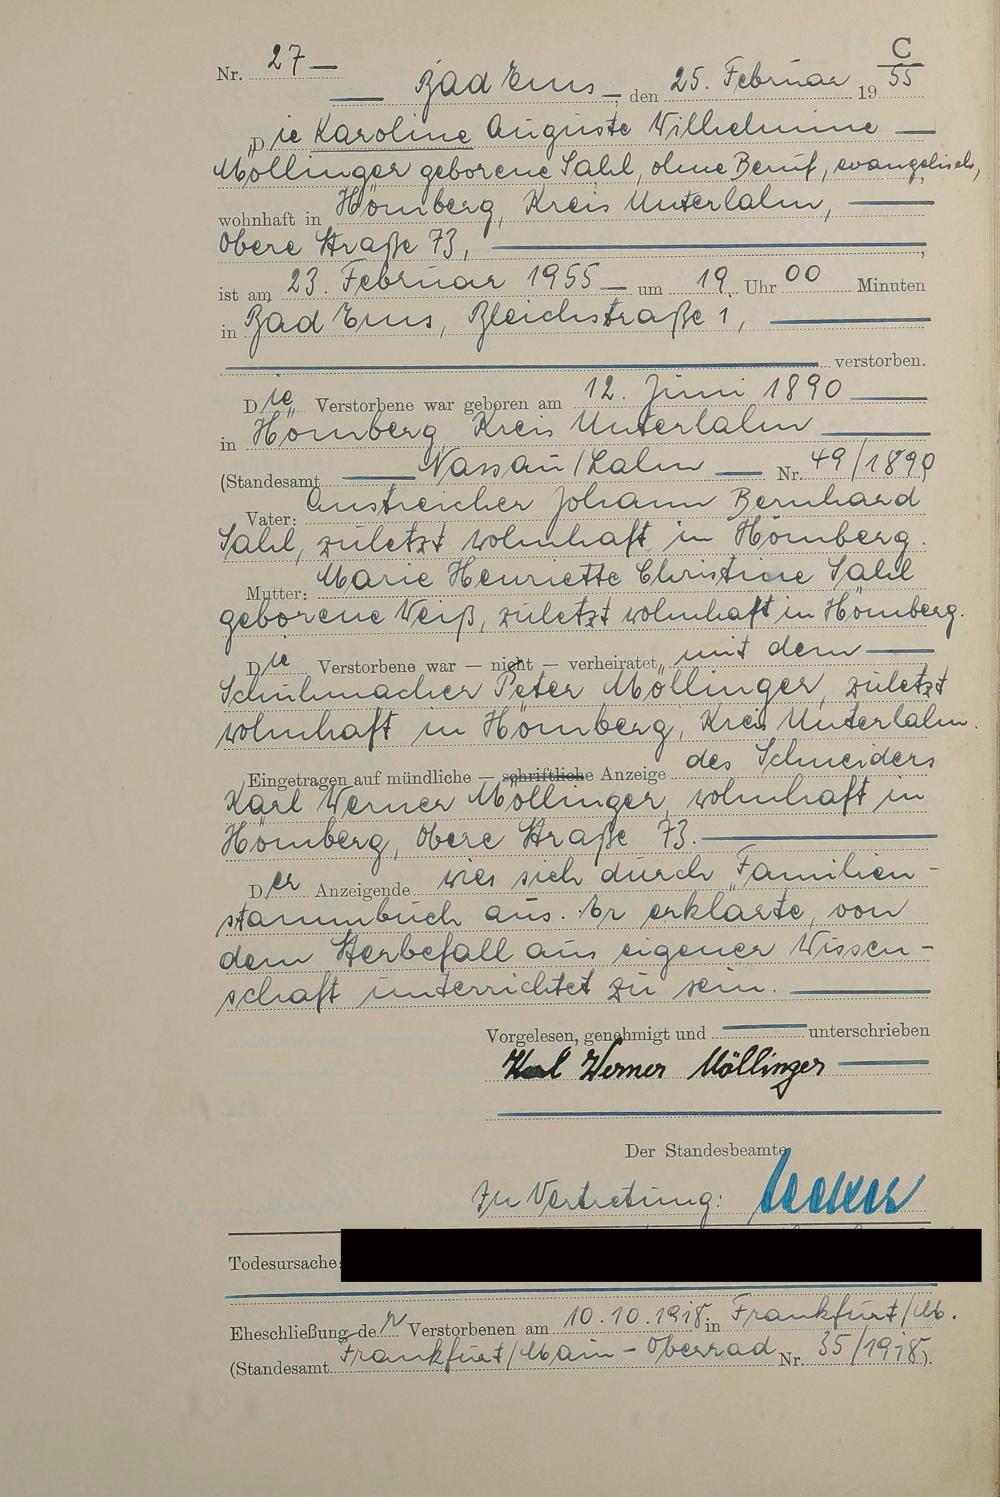 C
Nr. 27
Bad Ems, den 25. Februar 1955
Die Karoline Auguste Wilhelmine
Möllinger geborene Sahl, ohne Beruf, evangelisch,
wohnhaft in Hömberg, Kreis Unterlahn,
Obere Straße 73,
ist am 23. Februar 1955 um 19 Uhr 00 Minuten
in Bad Ems, Bleichstraße 1,
verstorben.
Die Verstorbene war geboren am 12. Juni 1890
in Hömberg Kreis Unterlahn
(Standesamt Nassau/Lahn Nr. 49/1890
Vater: Anstreicher Johann Bernhard
Sahl, zuletzt wohnhaft in Hömberg.
Mutter: Marie Henriette Christine Sahl
geborene Weiß, zuletzt wohnhaft in Hömberg.
Die Verstorbene war — nicht — verheiratet mit dem
Schuhmacher Peter Möllinger, zuletzt
wohnhaft in Hömberg, Kreis Unterlahn.
Eingetragen auf mündliche — schriftliche Anzeige des Schneiders
Karl Werner Möllinger, wohnhaft in
Hömberg, Obere Straße 73.
Der Anzeigende wies sich durch Familien-
stammbuch aus. Er erklärte, von
dem Sterbefall aus eigener Wissen-
schaft unterrichtet zu sein.
Vorgelesen, genehmigt und unterschrieben
Karl Werner Möllinger
Der Standesbeamte
In Vertretung:
Todesursache:
Eheschließung der Verstorbenen am 10.10.1918 in Frankfurt/M.
(Standesamt Frankfurt/Main-Oberrad Nr. 35/1918).